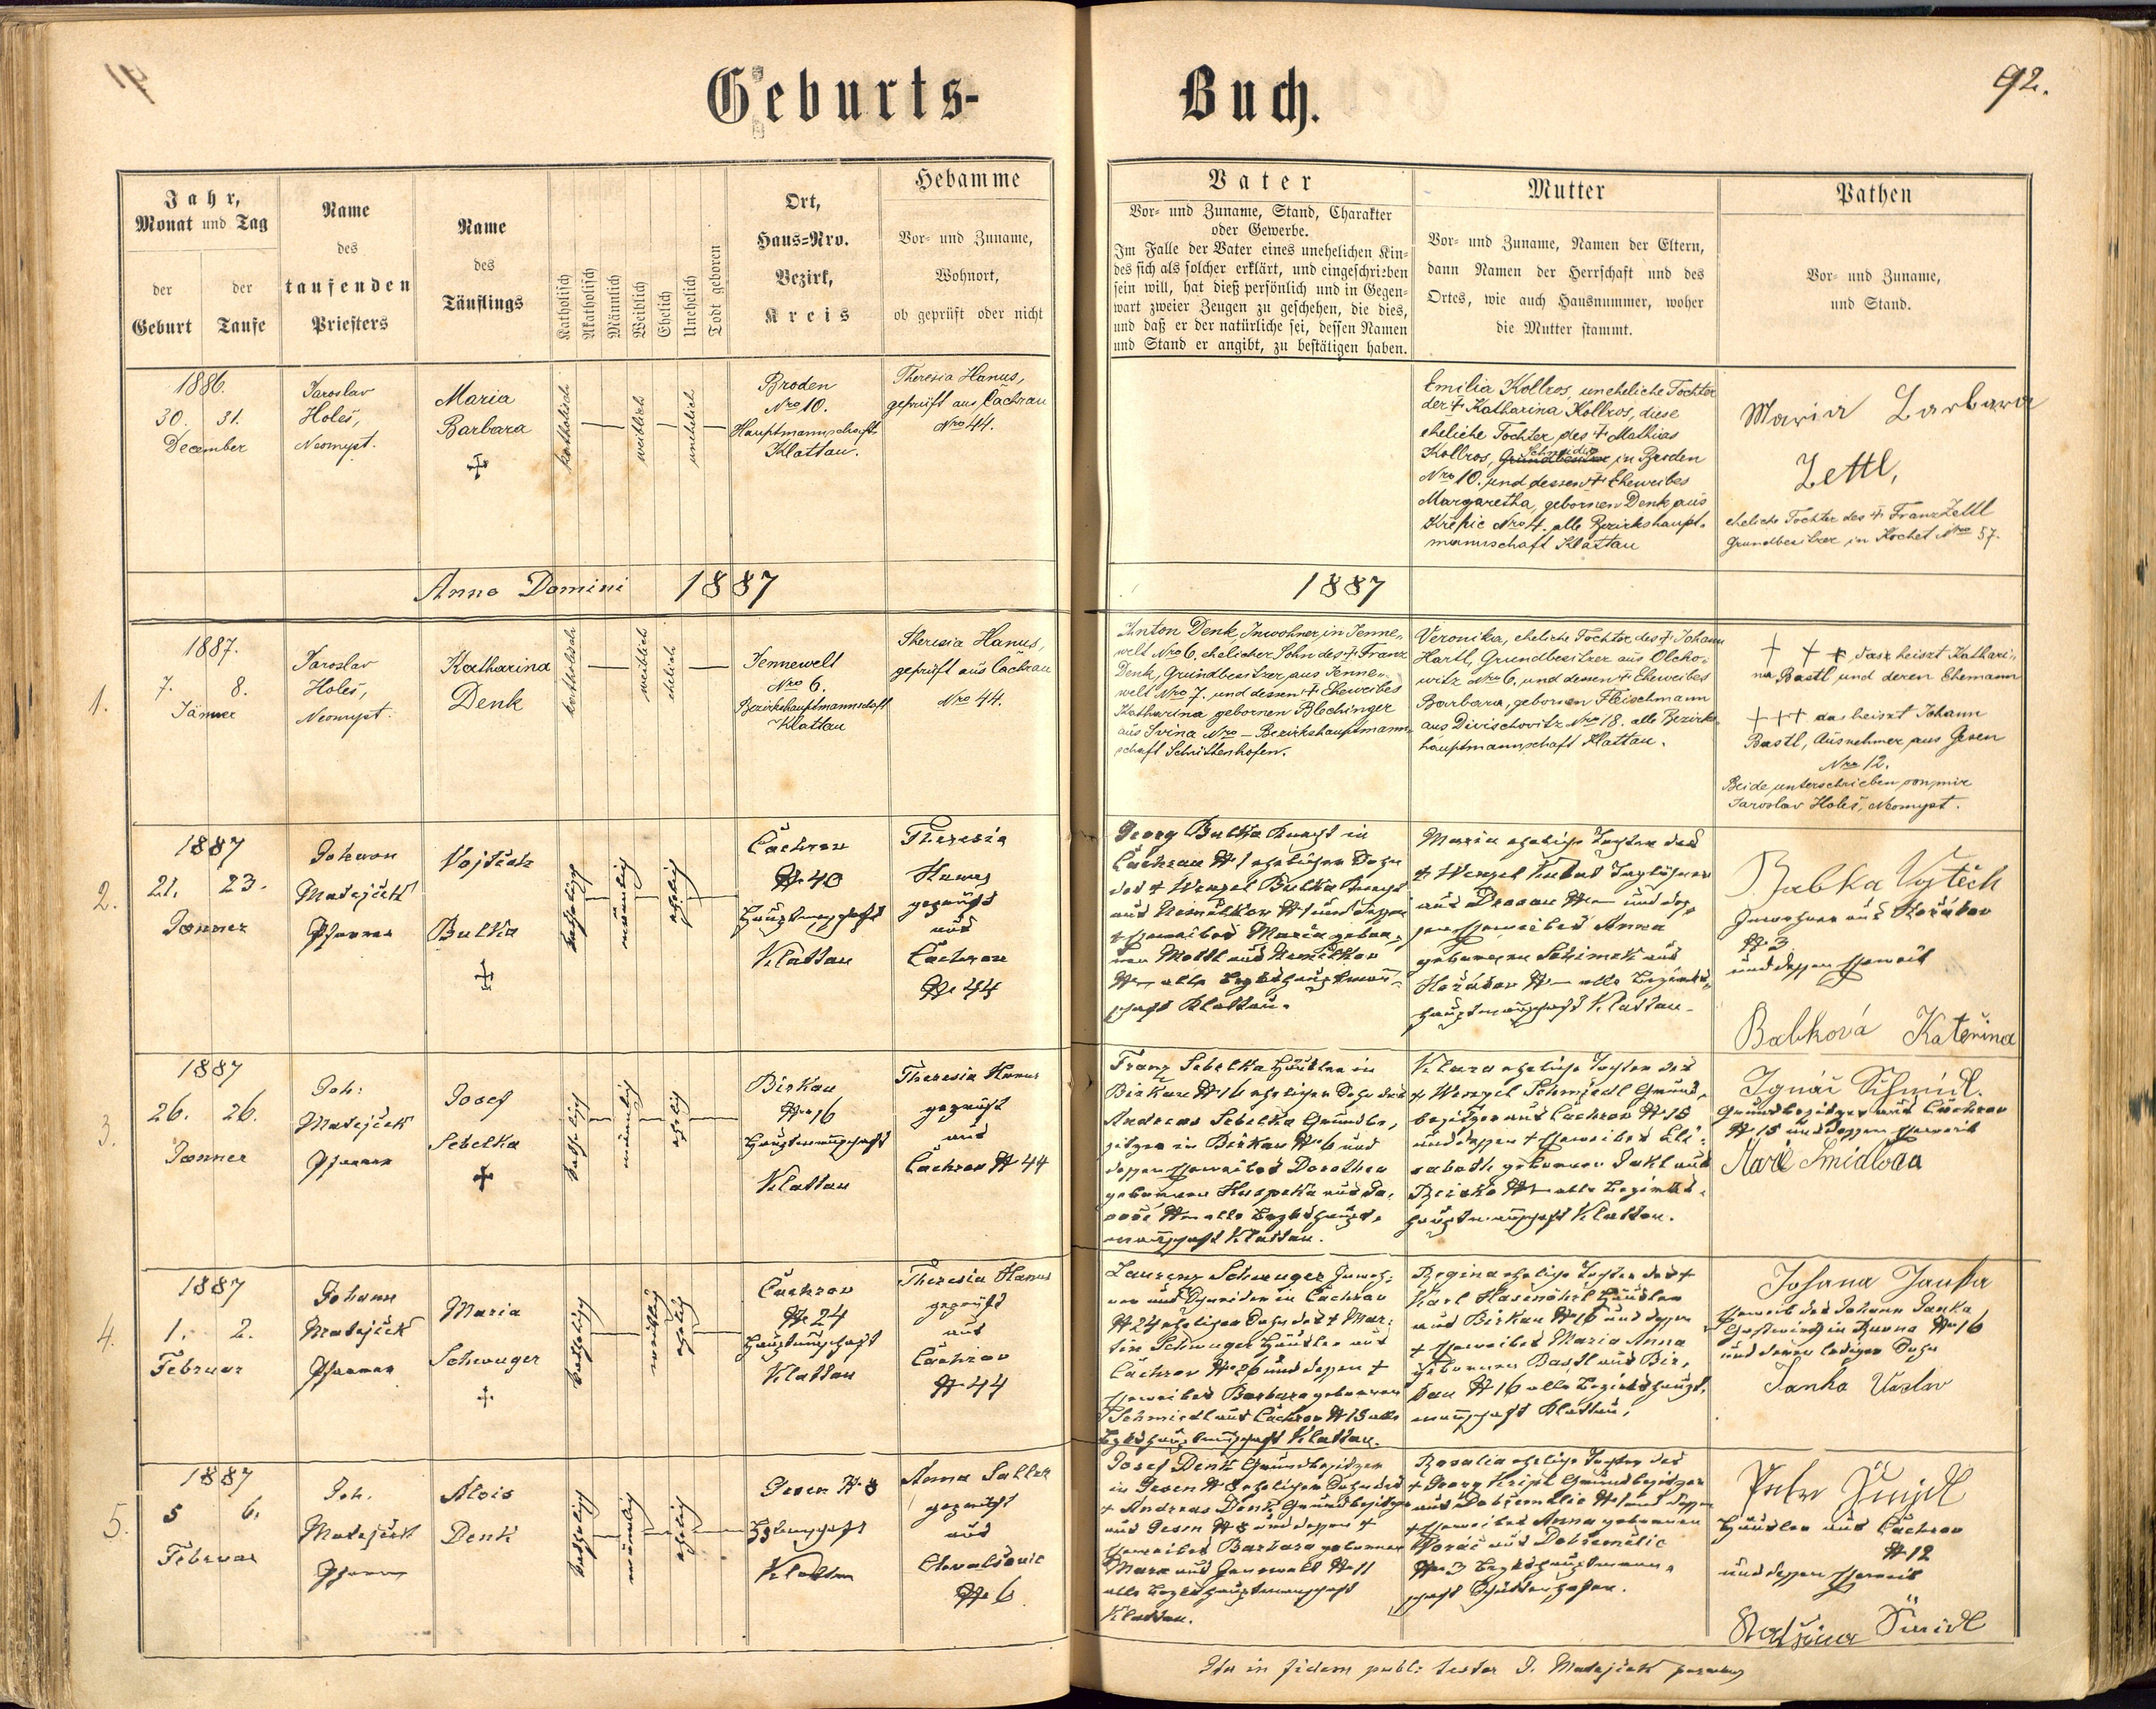 Geburts-
Buch.
92.
Jahr,
Monat und Tag
der Geburt
der Taufe
Name
des
taufenden
Priesters
Name
des
Täuflings
Katholisch
Akatholisch
Männlich
Weiblich
Ehelich
Unehelich
Todt geboren
Ort,
Haus-Nro.
Bezirk,
Kreis
Hebamme
Vor- und Zuname,
Wohnort,
ob geprüft oder nicht
Vater
Vor- und Zuname, Stand, Charakter
oder Gewerbe.
Im Falle der Vater eines unehelichen Kin-
des sich als solcher erklärt, und eingeschrieben
sein will, hat dieß persönlich und in Gegen-
wart zweier Zeugen zu geschehen, die dies,
und daß er der natürliche sei, dessen Namen
und Stand er angibt, zu bestätigen haben.
Mutter
Vor- und Zuname, Namen der Eltern,
dann Namen der Herrschaft und des
Ortes, wie auch Hausnummer, woher
die Mutter stammt.
Pathen
Vor- und Zuname,
und Stand.
1886.
30. 31.
December
Jaroslav
Holeš,
Neomyst.
Maria
Barbara
katholisch
weiblich
unehelich
Broden
Nro 10.
Hauptmannschaft
Klattau.
Theresia Hanus,
geprüft aus Čachrau
Nro 44.
Emilia Kollros, uneheliche Tochter
der † Katharina Kollros, diese
eheliche Tochter des † Mathias
Kollros, Schneider in Broden
Nro 10. und dessen † Eheweibes
Margaretha, gebornen Denk aus
Křepic Nro 4. alle Bezirkshaupt-
mannschaft Klattau
Maria Barbara
Zettl,
eheliche Tochter des † Franz Zettl
Grundbesitzer in Kochet Nro 57.
Anno Domini 1887
1887
1.
1887.
7. 8.
Jänner
Jaroslav
Holeš,
Neomyst.
Katharina
Denk
katholisch
weiblich
ehelich
Jennewelt
Nro 6.
Bezirkshauptmannschaft
Klattau
Theresia Hanus,
geprüft aus Čachrau
Nro 44.
Anton Denk, Inwohner, in Jenne-
welt Nro 6. ehelicher Sohn des † Franz
Denk, Grundbesitzer, aus Jenne-
welt Nro 7. und dessen † Eheweibes
Katharina gebornen Blechinger
aus Nro – Bezirkshauptmann-
schaft Schüttenhofen.
Veronika, eheliche Tochter, des † Johann
Hartl, Grundbesitzer aus Olcho-
witz Nro 6, und dessen † Eheweibes
Barbara, gebornen Fleischmann
aus Divischovitz Nro 18. alle Bezirks-
hauptmannschaft Klattau.
† † †, das heiszt Kathari-
na Bastl und deren Ehemann
††† das heiszt Johann
Bastl, Ausnehmer aus Gesen
Nro 12.
Beide unterschrieben von mir
Jaroslav Holeš, Neomyst.
2.
1887
21. 23.
Jänner
Johann
Matejček
Pfarrer
Vojtěch
Bulka
katholisch
männlich
ehelich
Čachrau
N 40
Hauptmannschaft
Klattau
Theresia
Hanus
geprüft
aus
Čachrau
N 44
Georg Bulka Knecht in
Čachrau N 1 ehelicher Sohn
des † Wenzel Bulka Knecht
aus N 1 und dessen
† Eheweibes Maria gebor-
nen Mottl aus Nemilkov
N – alle Bezirkshauptmann-
schaft Klattau.
Maria eheliche Tochter des
† Wenzel Kubat Taglöhner
aus Drosau N – und des-
sen Eheweibes Anna
gebornen Schimek aus
N – alle Bezirks-
hauptmannschaft Klattau.
Babka Vojtěch
Inwohner aus
N 3
und dessen Eheweib
Babková Kateřina
3.
1887
26. 26.
Jänner
Joh:
Matejček
Pfarrer
Josef
Sebelka
katholisch
männlich
ehelich
Birkau
N 16
Hauptmannschaft
Klattau
Theresia Hanus
geprüft
aus
Čachrau N 44
Franz Sebelka Häusler in
Birkau N 16 ehelicher Sohn des
Andreas Sebelka Grundbe-
sitzer in Birkau N 6 und
dessen Eheweibes Dorothea
gebornen
N – alle Bezirkshaupt-
mannschaft Klattau.
Klara eheliche Tochter des
† Wenzel Schmiedl Grund-
besitzer aus Čachrau N 15
und dessen † Eheweibes Eli-
sabeth gebornen aus
N – alle Bezirks-
hauptmannschaft Klattau.
Ignác Schmidl.
Grundbesitzer aus Čachrau
N 15 und dessen Eheweib
Marie Šmidlova
4.
1887
1. 2.
Februar
Johann
Matejček
Pfarrer
Maria
Schwuger
katholisch
weiblich
ehelich
Čachrau
N 24
Hauptmannschaft
Klattau
Theresia Hanus
geprüft
aus
Čachrau
N 44
Laurenz Schwuger Inwoh-
ner und Schneider in Čachrau
N 24 ehelicher Sohn des † Mar-
tin Schwuger Häusler aus
Čachrau N 26 und dessen †
Eheweibes Barbara gebornen
Schmiedl aus Čachrau N 15 alle
Bezirkshauptmannschaft Klattau.
Regina eheliche Tochter des †
Karl Hasenöhrl Häusler
aus Birkau N 16 und dessen
† Eheweibes Maria Anna
gebornen Bastl aus Bir-
kau N 16 alle Bezirkshaupt-
mannschaft Klattau.
Johana Janka
Eheweib des Johann Janka
Gastwirth in N 16
und deren lediger Sohn
Janka Vaclav
5.
1887
5 6.
Februar
Joh.
Matejček
Pfarrer
Alois
Denk
katholisch
männlich
ehelich
Gesen N 8
Klattau
Anna Saller
geprüft
aus
Chvalšovic
N 6
Josef Denk Grundbesitzer
in Gesen N 8 ehelicher Sohn des
† Andreas Denk Grundbesitzer
aus Gesen N 8 und dessen †
Eheweibes Barbara gebornen
Marx aus Jenewelt N 11
alle Bezirkshauptmannschaft
Klattau.
Rosalia eheliche Tochter des
† Georg Grundbesitzer
aus Dobřemělic N 1 und dessen
† Eheweibes Anna gebornen
aus Dobřemělic
N 3 Bezirkshauptmann-
schaft Schüttenhofen.
Peter Schmidl
Häusler aus Čachrau
N 12
und dessen Eheweib
Šmidl
Ita in fidem publ: testor J. Matejček parochus